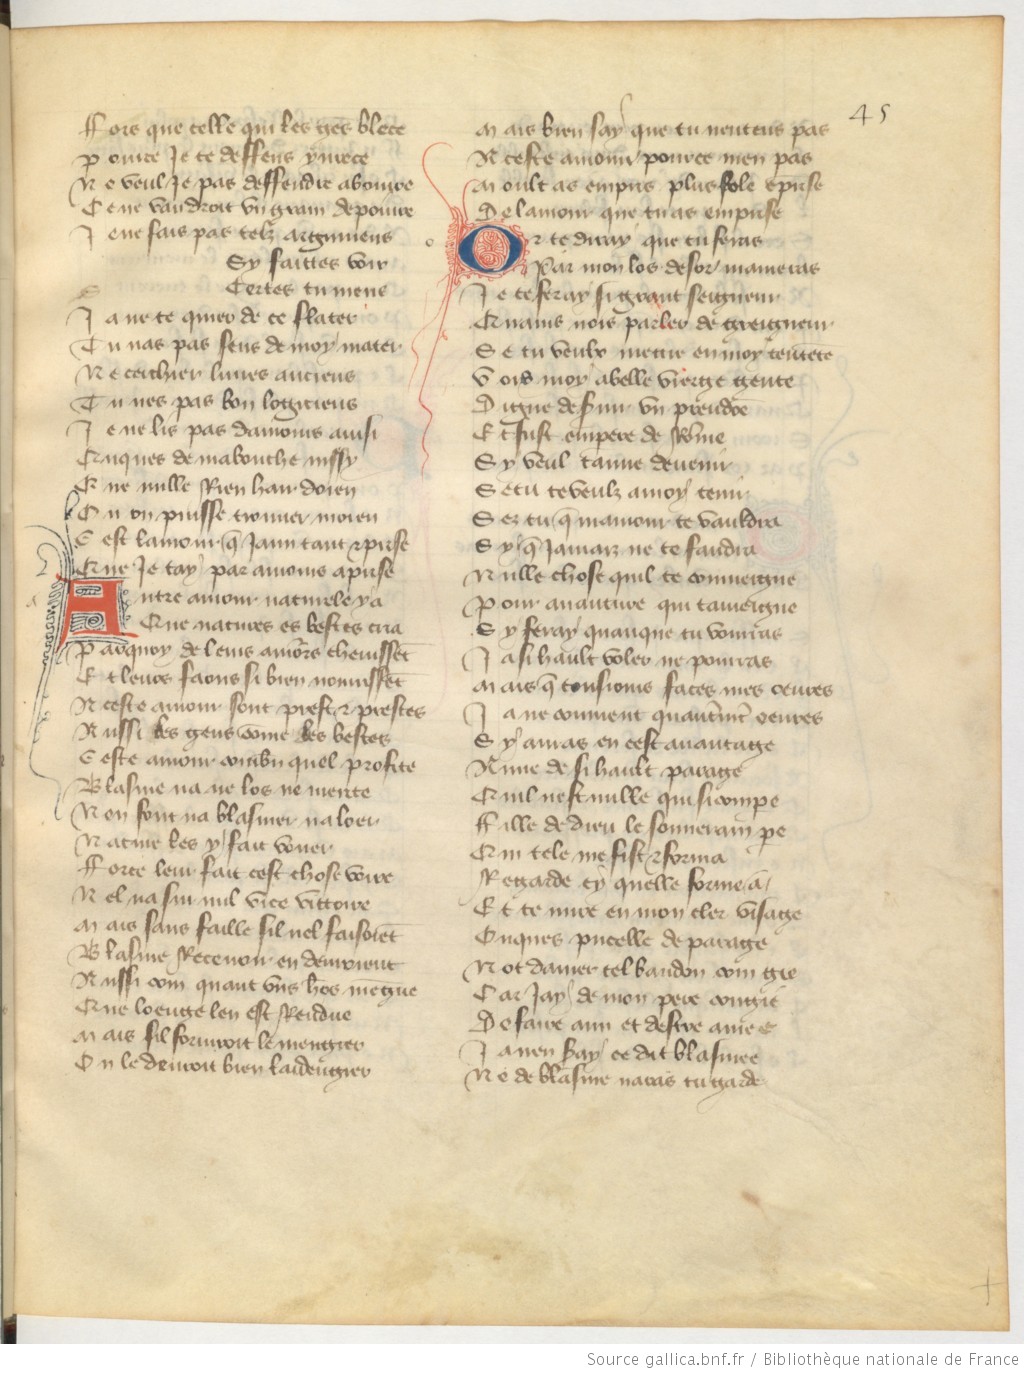 45
Fors que celle qui les gens blece
Pource Je te deffens ymece
Ne veul Je pas deffendre aboivre
Ce ne vaudroit vn grain de poivre
Je ne fais pas telz argumens
Sy faittes voir
Certes tu mens
Ja ne te quier de ce flater
Tu nas pas sens de moy mater
Ne cerchier liures anciens
Tu nes pas bon logiciens
Je ne lis pas damours ainsi
Onques de ma bouche nissy
Que nulle Rien hair doien
On on puisse trouuer moien
Cest lamour q̄ Jaim tant & prise
Que Je tay par amours aprise
Autre amour naturele ya
Que natures es bestes cria
Par quoy de leurs amours cheuissēt
Et leurs faons si bien nourrissēt
A ceste amour sont prest & prestes
Aussi les gens cōme les bestes
Ceste amour combn quel profite
Blasme na ne los ne merite
Non font na blasmer na loer
Nature les y fait vouer
Force leur fait cest chose voire
Nel na sur nul vice vittoire
Mais sans faille sil nel faisoiēt
Blasme Receuoir en deuroient
Aussi com quant vns hōs megue
Que loenge len est Rendue
Mais sil foruuoit le mengier
On le deuroit bien laidengier
Mais bien say que tu nentens pas
A ceste amour pource men pas
Moult as empris plus fole emprise
De lamour que tu as emprise
Or te diray que tu feras
Par mon los desor mameras
Je te feray si grant seigneur
Quains nois parler de greigneur
Se tu veulx mettre en moy tentēte
Vois moy a belle vierge gente
Digne de seruir vn preudōe
Et fust empere de Rōme
Sy veul tamie deuenir
Se tu te veulz a moy tenir
Ses tu q̄ mamour te vauldra
Sy q̄ Jamaiz ne te faudra
Nulle chose quil te conueigne
Pour auanture qui taueigne
Sy feray quanque tu vourras
Ja si hault voler ne pourras
Mais q̄ tousiours faces mes oeures
Ja ne conuient quautrmt oeures
Sy auras en cest auantage
Amie de si hault parage
Quil nest nulle qui si compe
Fille de dieu le souuerain p̄e
Qui tele me fist & forma
Regarde cy quelle forme a
Et te mire en mon cler visage
Onques pucelle de parage
Not damer tel bandon com gie
Car Jay de mon pere congie
De faire ami et destre amee
Ja nen Say ce dit blasmee
Ne de blasme naras tu garde
Source gallica.bnf.fr / Bibliothèque nationale de France